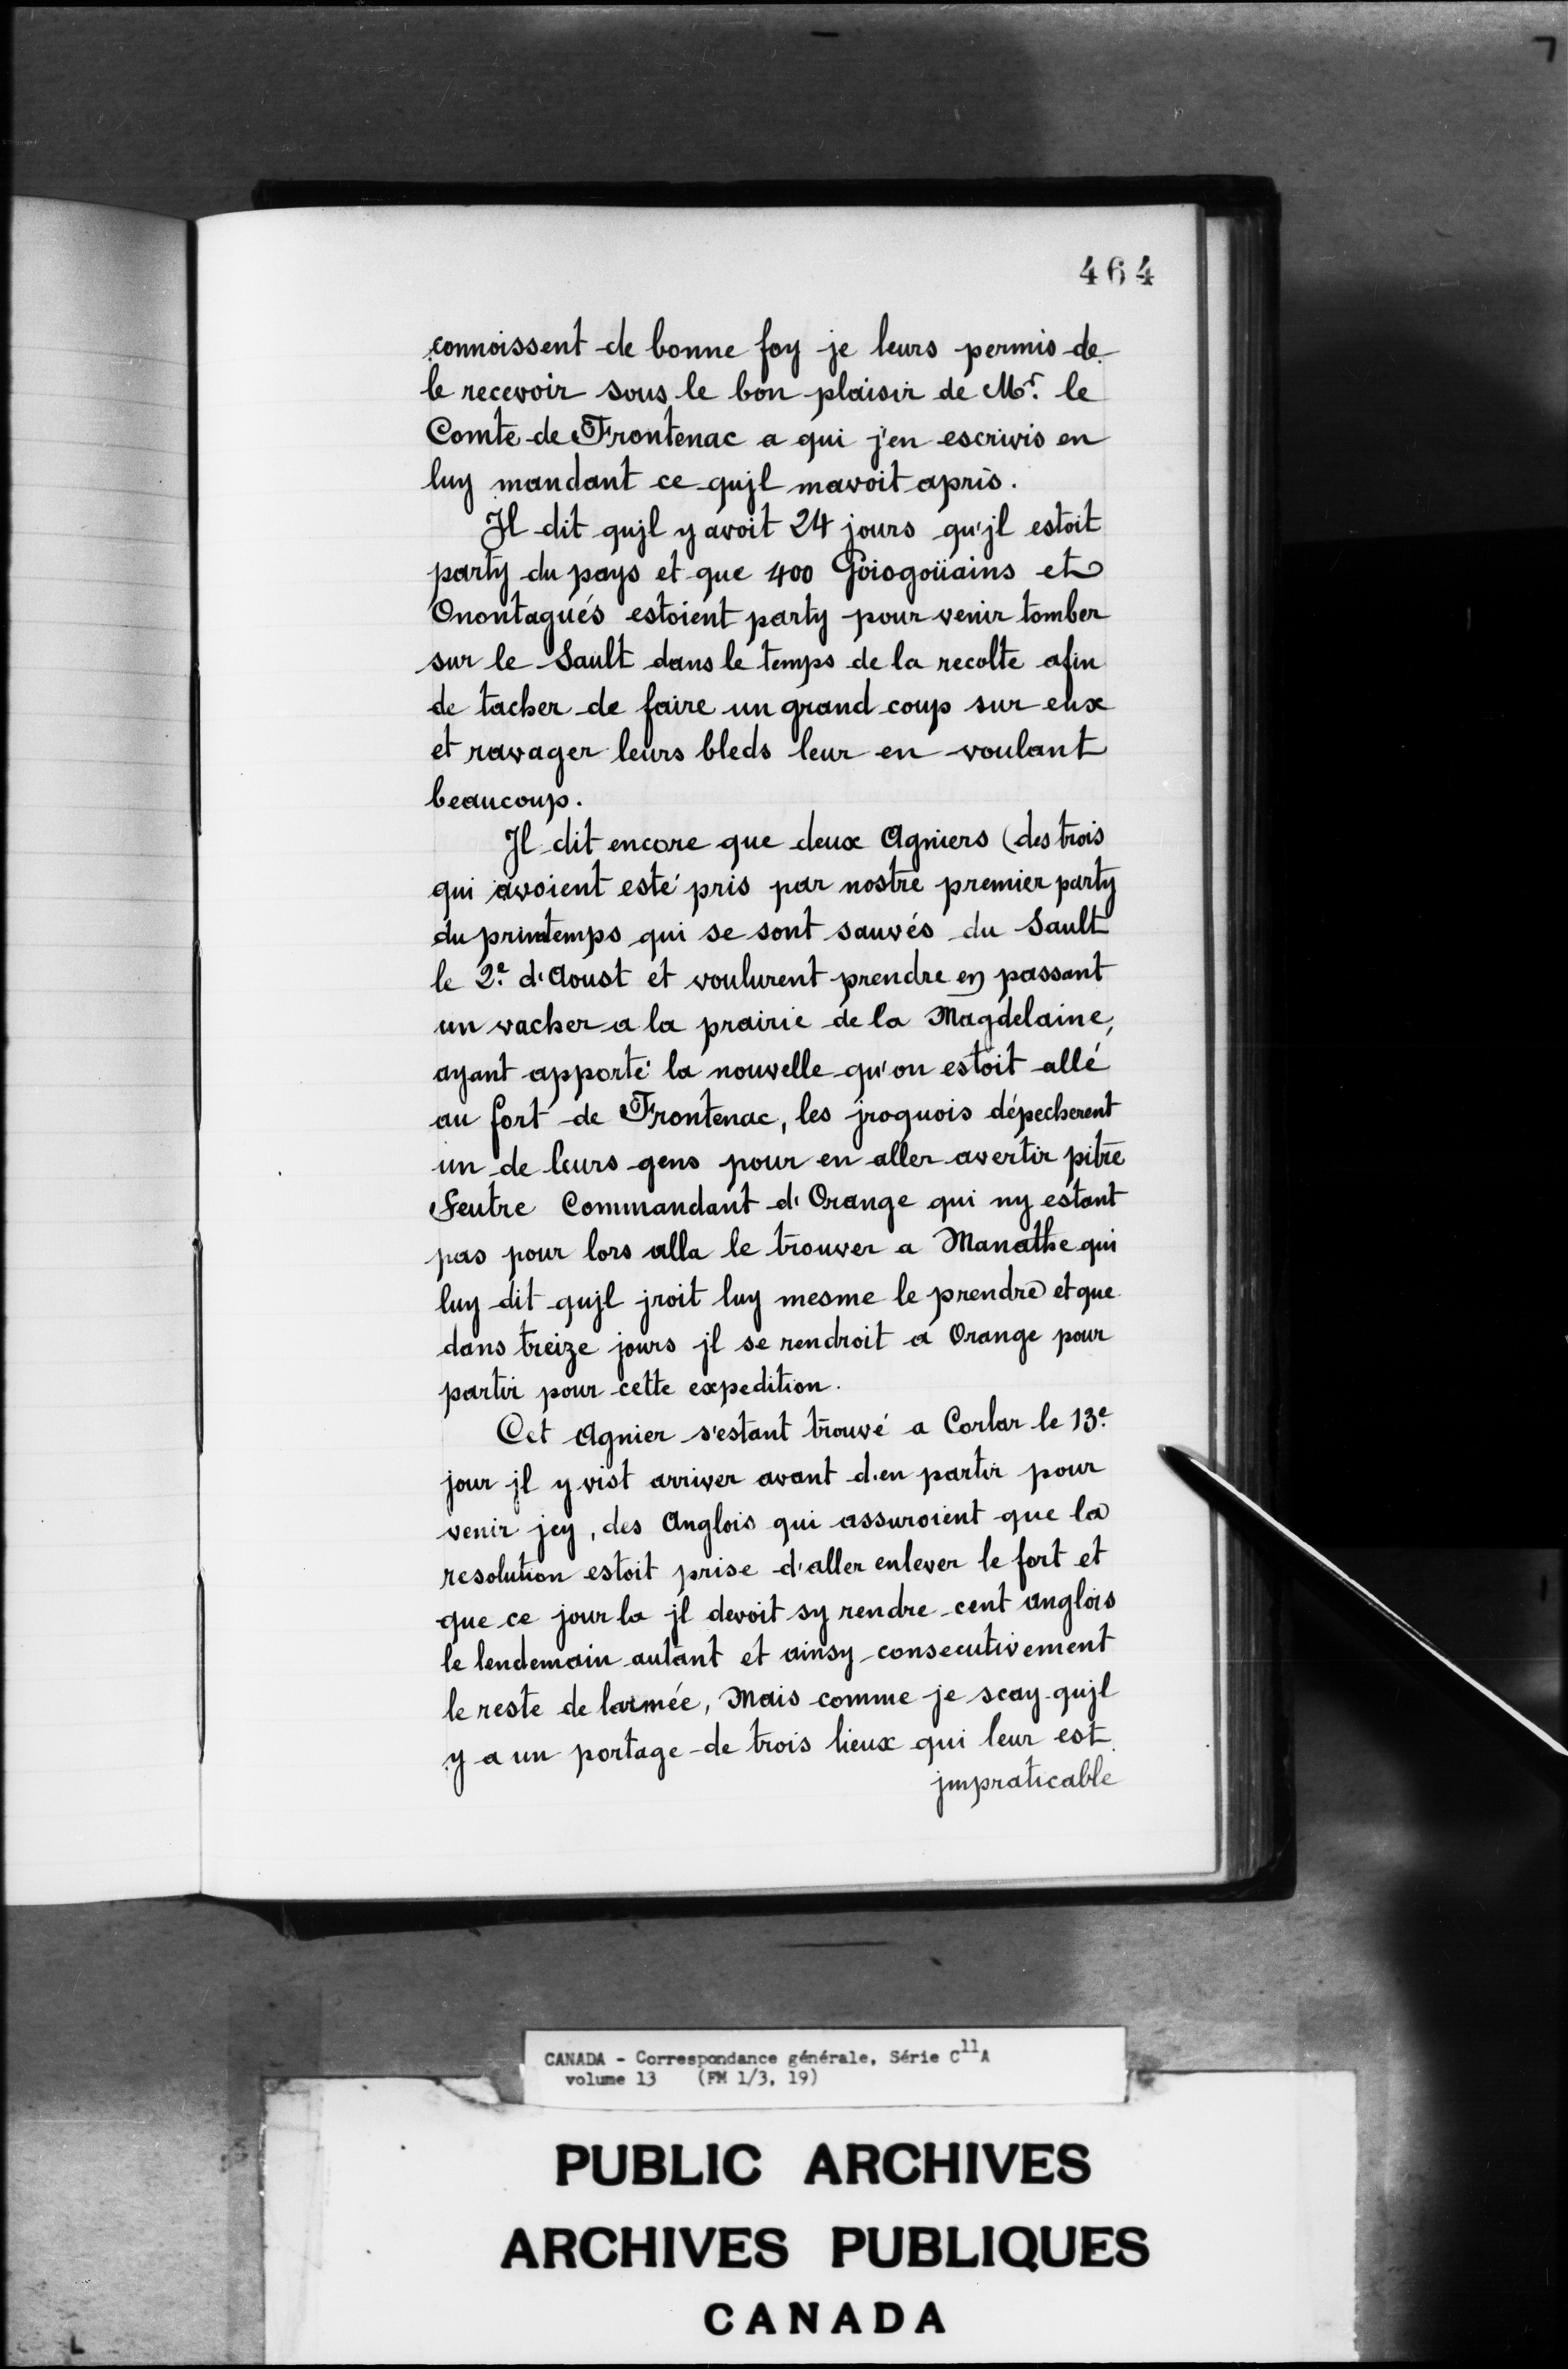 464
connoissent de bonne foy je leurs permis de
le recevoir sous le bon plaisir de Mr. le
Comte de Frontenac a qui j'en escrivis en
luy mandant ce qujl mavoit apris.
Jl dit qujl y avoit 24 jours qu'jl estoit
party du pays et que 400 Goiogoüains et
Onontagués estoient party pour venir tomber
sur le Sault dans le temps de la recolte afin
de tacher de faire un grand coup sur eux
et ravager leurs bleds leur en voulant
beaucoup.
Jl dit encore que deux Agniers (des trois
qui avoient esté pris par nostre premier party
du printemps qui se sont sauvés du Sault
le 2e. d'Aoust et voulurent prendre en passant
un vacher a la prairie de la Magdelaine,
ayant apporté la nouvelle qu'on estoit allé
au fort de Frontenac, les jroquois dépecherent
un de leurs gens pour en aller avertir pitre
Feutre Commandant d'Orange qui ny estant
pas pour lors alla le trouver a Manathe qui
luy dit qujl jroit luy mesme le prendre et que
dans treize jours jl se rendroit a Orange pour
partir pour cette expedition.
Cet Agnier s'estant trouvé a Corlar le 13e.
jour jl y vist arriver avant d'en partir pour
venir jcy, des Anglois qui assuroient que la
resolution estoit prise d'aller enlever le fort et
que ce jour la jl devoit sy rendre cent anglois
le lendemain autant et ainsy consecutivement
le reste de larmée, Mais comme je scay qujl
y a un portage de trois lieux qui leur est
jmpraticable
CANADA - Correspondance générale, Série C11A
volume 13 (FM 1/3, 19)
PUBLIC ARCHIVES
ARCHIVES PUBLIQUES
CANADA